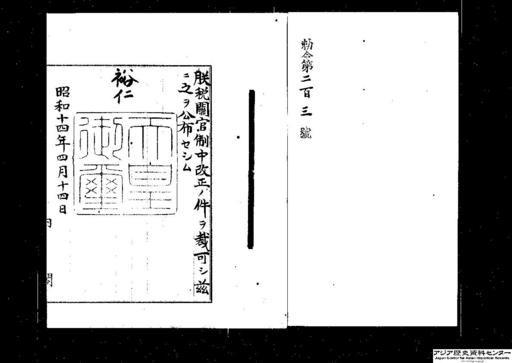 勅令第二百三號
朕税關官制中改正ノ件ヲ裁可シ茲
ニ之ヲ公布セシム
裕仁
天皇
御璽
昭和十四年四月十四日
内閣
アジア歴史資料センター
Japan Center for Asian Historical Records